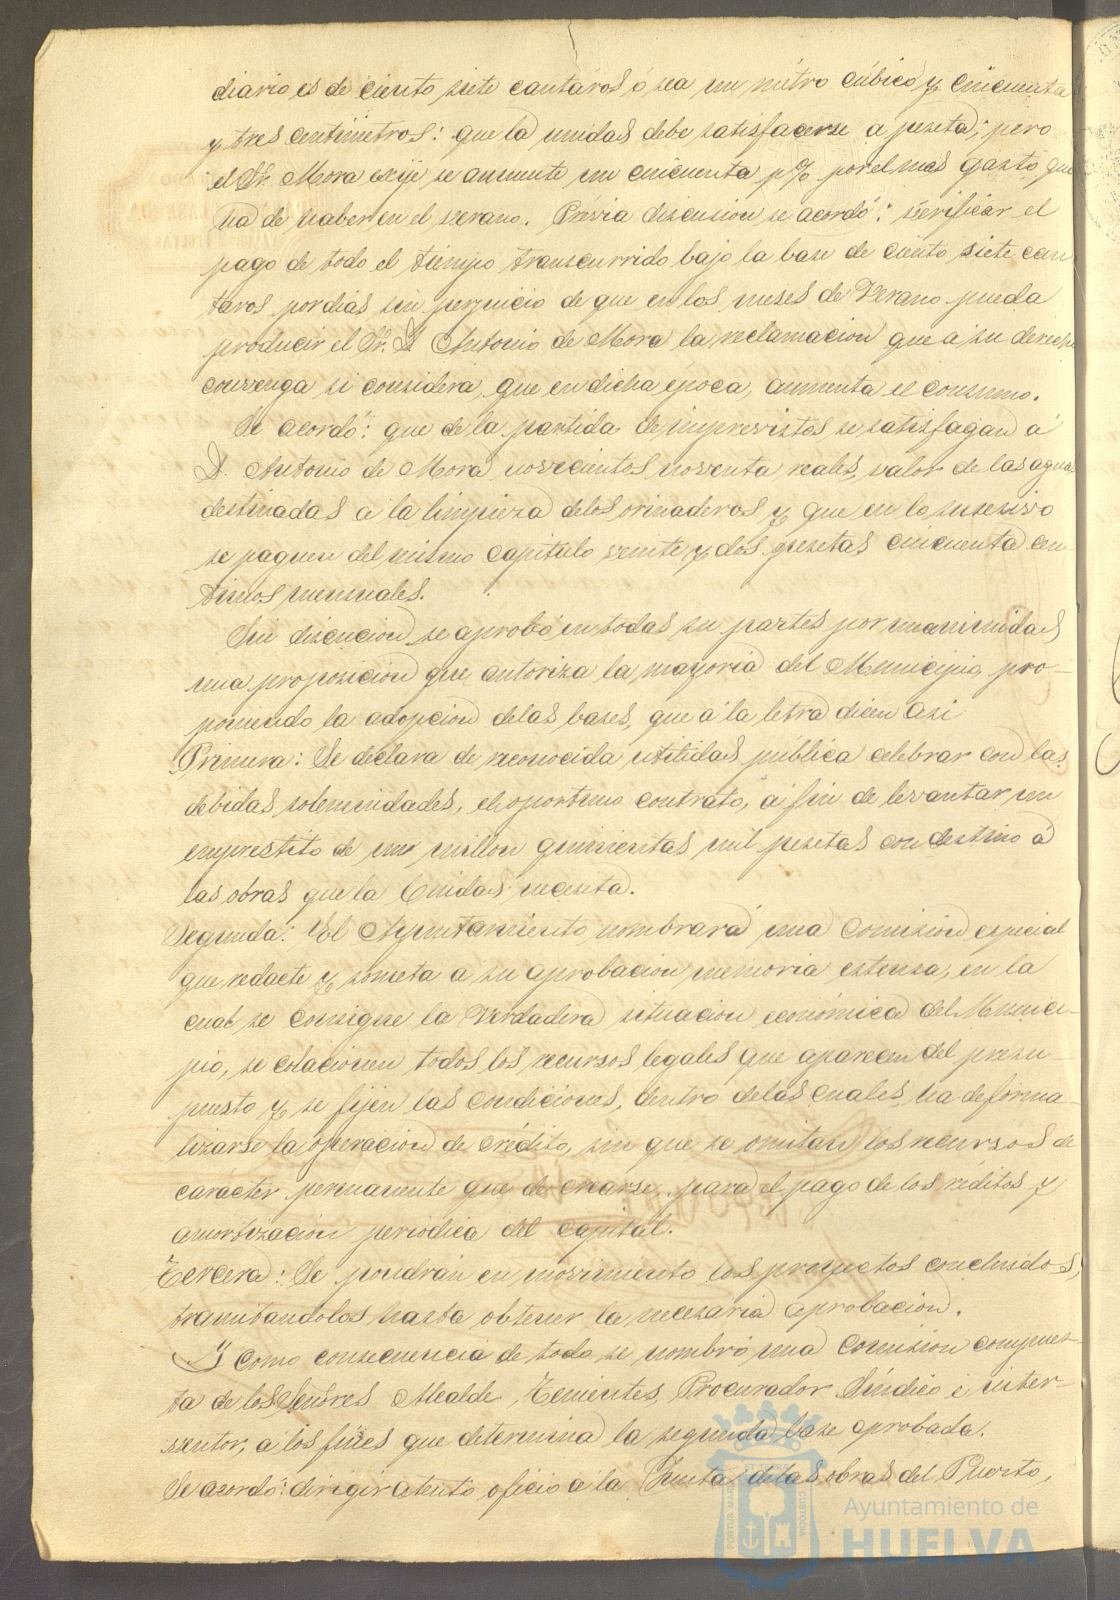 diario es de ciento siete cantaros ó sea un métro cúbico y cincuenta
y tres centimetros: que la unidad debe satisfacerse a peseta; pero
el Sr. Mora exije se aumente un cincuenta p% por el mas gasto que
ha de haber en el verano. Prévia discusion se acordó: Verificar el
pago de todo el tiempo transcurrido bajo la base de ciento siete can
taros por dias sin perjuicio de que en los meses de Verano pueda
producir el Sr. D. Antonio de Mora la reclamacion que a su derecho
convenga si considera, que en dicha época, aumenta el consumo.
Se acordó: que de la partida de imprevistos se satisfagan á
D. Antonio de Mora novecientos noventa reales, valor de las aguas
destinadas a la limpieza de los orinaderos y que en lo susesivo
se paguen del mismo capitulo veinte y dos pesetas cincuenta cen
timos mensuales.
Sin discucion se aprobó en todas su partes por unanimidad
una proposicion que autoriza la mayoria del Municipio, pro-
poniendo la adopcion de las bases, que á la letra dicen asi
Primera: Se declara de reconocida utilidad pública celebrar con las
debidas solemnidades, el oportuno contrato, á fin de levantar un
emprestito de un millon quinientas mil pesetas con destino á
las obras que la Ciudad necesita.
Segunda: El Ayuntamiento nombrará una Comision especial
que redacte y someta a su aprobacion memoria estensa, en la
cual se consigne la verdadera situacion económica del Munici-
pio, se colacionen todos los recursos legales que aparecen del presu-
puesto y se fijen las condiciones, dentro de las cuales, ha de forma-
lizarse la operacion de crédito, sin que se omitan los recursos de
carácter permanente que dé crearse, para el pago de los reditos y
amortizacion periódica del capital.
Tercera: Se pondrán en movimiento los proyectos concluidos,
tramitandolos hasta obtener la necesaria aprobacion.
Y como consecuencia de todo se nombró una Comision compues-
ta de los Señores Alcalde, Tenientes, Procurador Síndico é inter-
ventor, a los fines que determina la segunda base aprobada.
Se acordó: dirigir atento oficio a la Junta de las obras del Puerto,
PORTUS MARIS
CUSTODIA
Ayuntamiento de
HUELVA